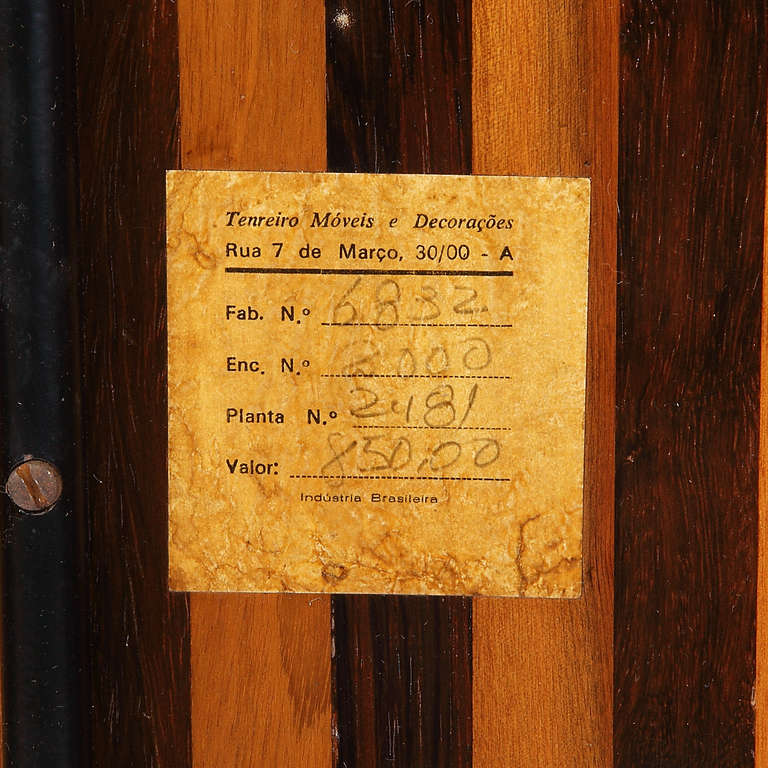 Tenreiro Móveis e Decorações
Rua 7 de Março, 30/00 - A
Fab. N.º 6832
Enc. N.º 2000
Planta N.º 2481
Valor: 850,00
Indústria Brasileira